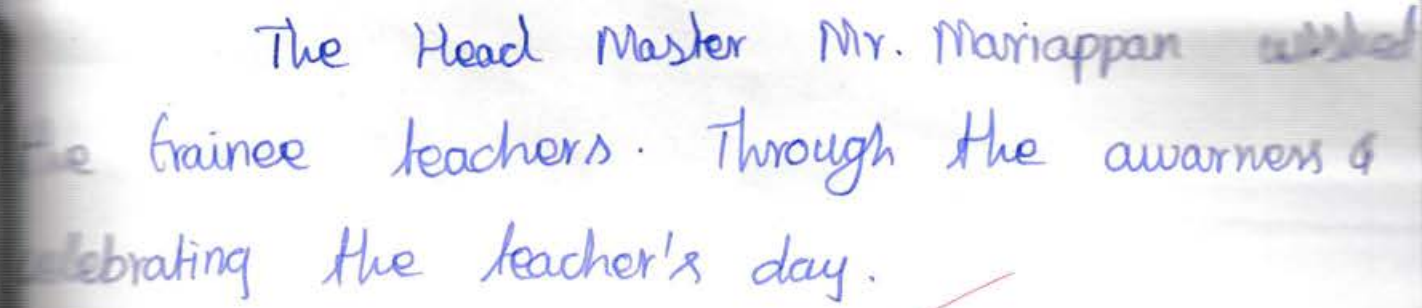 The Head Master Mr. Mariappan wished
the trainee teachers. Through the awarness &
celebrating the teacher's day.